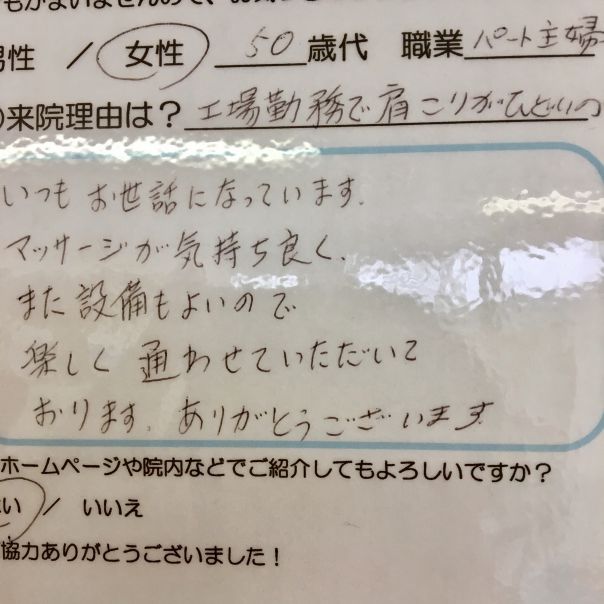 もかまいませんので、お気
男性 / 女性 50歳代 職業 パート主婦
の来院理由は？ 工場勤務で肩こりがひどいの
いつもお世話になっています。
マッサージが気持ち良く、
また設備もよいので
楽しく通わせていただいて
おります。ありがとうございます
ホームページや院内などでご紹介してもよろしいですか？
はい / いいえ
協力ありがとうございました！